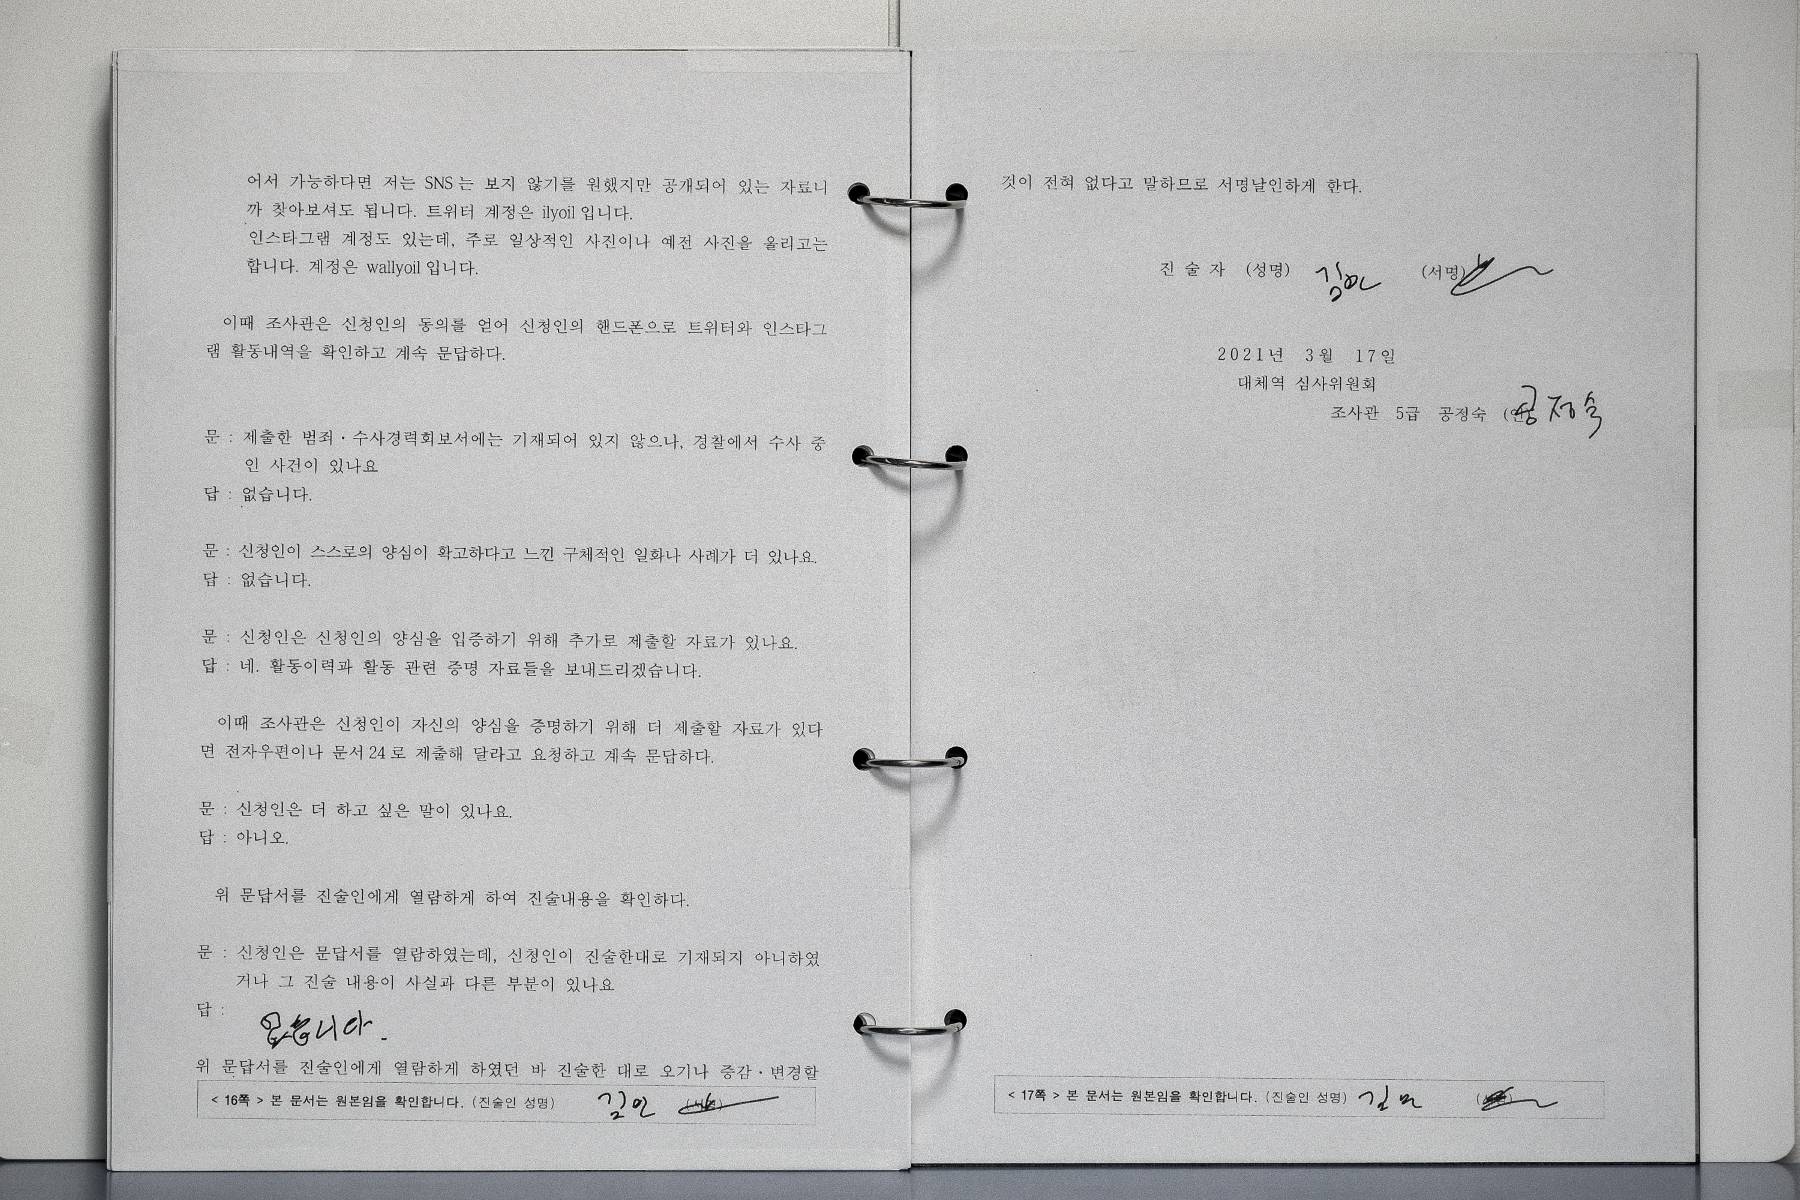 어서 가능하다면 저는 SNS는 보지 않기를 원했지만 공개되어 있는 자료니
까 찾아보셔도 됩니다. 트위터 계정은 ilyoil입니다.
인스타그램 계정도 있는데, 주로 일상적인 사진이나 예전 사진을 올리고는
합니다. 계정은 wallyoil입니다.
이때 조사관은 신청인의 동의를 얻어 신청인의 핸드폰으로 트위터와 인스타그
램 활동내역을 확인하고 계속 문답하다.
문 : 제출한 범죄·수사경력회보서에는 기재되어 있지 않으나, 경찰에서 수사 중
인 사건이 있나요
답 : 없습니다.
문 : 신청인이 스스로의 양심이 확고하다고 느낀 구체적인 일화나 사례가 더 있나요.
답 : 없습니다.
문 : 신청인은 신청인의 양심을 입증하기 위해 추가로 제출할 자료가 있나요.
답 : 네. 활동이력과 활동 관련 증명 자료들을 보내드리겠습니다.
이때 조사관은 신청인이 자신의 양심을 증명하기 위해 더 제출할 자료가 있다
면 전자우편이나 문서24로 제출해 달라고 요청하고 계속 문답하다.
문 : 신청인은 더 하고 싶은 말이 있나요.
답 : 아니오.
위 문답서를 진술인에게 열람하게 하여 진술내용을 확인하다.
문 : 신청인은 문답서를 열람하였는데, 신청인이 진술한대로 기재되지 아니하였
거나 그 진술 내용이 사실과 다른 부분이 있나요
답 :
없습니다.
위 문답서를 진술인에게 열람하게 하였던 바 진술한 대로 오기나 증감·변경할
< 16쪽 > 본 문서는 원본임을 확인합니다. (진술인 성명)
것이 전혀 없다고 말하므로 서명날인하게 한다.
진 술 자 (성명) (서명)
2021년 3월 17일
대체역 심사위원회
조사관 5급 공정숙 (인) 공정숙
< 17쪽 > 본 문서는 원본임을 확인합니다. (진술인 성명)